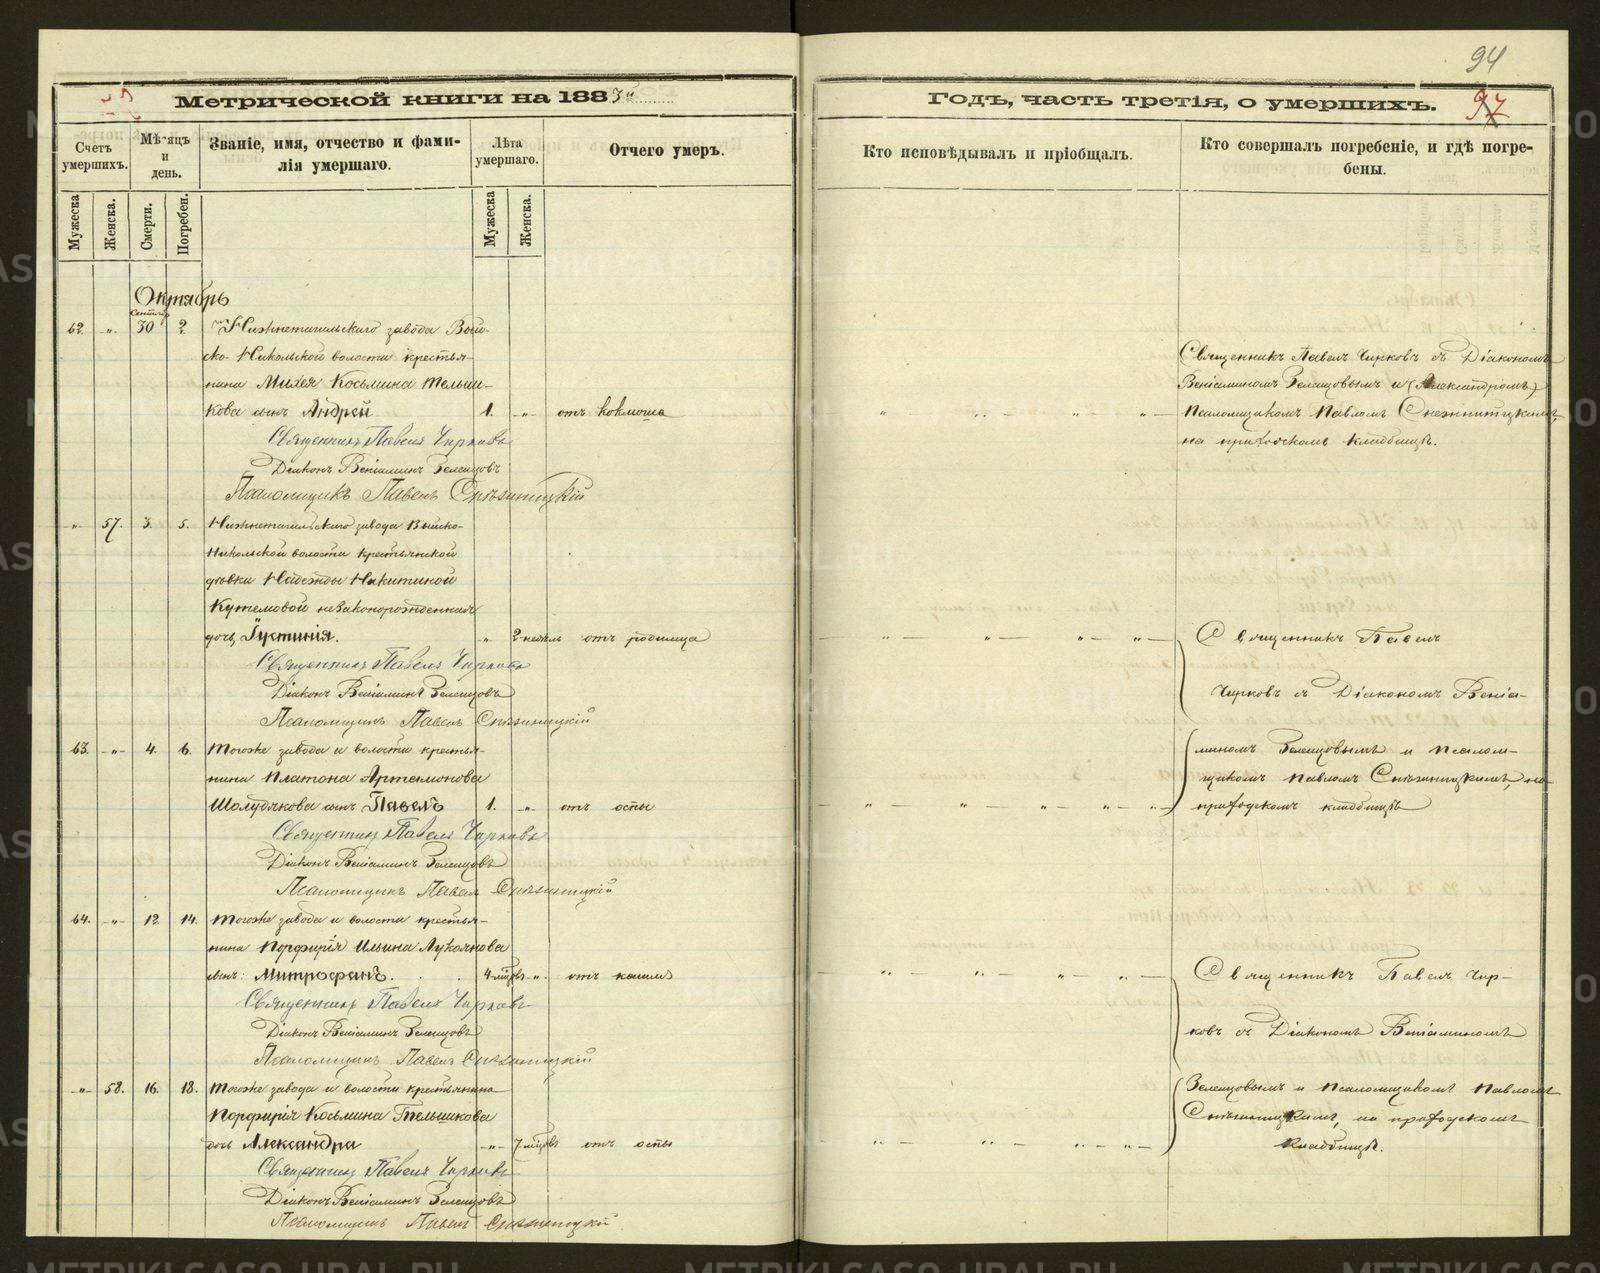 94
97
Метрической книги на 1883й
Годъ, часть третія, о умершихъ.
Счетъ умершихъ.
Мѣсяцъ и день.
Званіе, имя, отчество и фами-
лія умершаго.
Лѣта умершаго.
Отчего умеръ.
Кто исповѣдывалъ и пріобщалъ.
Кто совершалъ погребеніе, и гдѣ погре-
бены.
Мужеска
Женска.
Смерти.
Погребен.
Мужеска
Женска.
Октябрь
62. „ 30 2. Нижнетагильскаго завода Вый-
ско-Никольской волости крестья-
нина Михея Косьмина Тельши-
кова сынъ Андрей 1. „ отъ коклюша
Священникъ Павелъ Чирковъ
Діаконъ Веніаминъ Зеленцовъ
Псаломщикъ Павелъ Снѣжницкій
Священникъ Павелъ Чирковъ съ Діакономъ
Веніаминомъ Зеленцовымъ и (Александромъ)
Псаломщикомъ Павломъ
на приходскомъ кладбищѣ.
„ 57. 3. 5. Нижнетагильскаго завода Выйско-
Никольской волости крестьянской
дѣвки Надежды Никитиной
Кутемовой незаконорожденная
дочь, Іустинія. „ 2 недѣль отъ родимца
Священникъ Павелъ Чирковъ
Діаконъ Веніаминъ Зеленцовъ
Псаломщикъ Павелъ Снѣжницкій
63. „ 4. 6. Тогоже завода и волости крестья-
нина Платона Артемонова
Шолудякова сынъ Павелъ 1. „ отъ оспы
Священникъ Павелъ Чирковъ
Діаконъ Веніаминъ Зеленцовъ
Псаломщикъ Павелъ Снѣжницкій
Священникъ Павелъ
Чирковъ съ Діакономъ Веніа-
миномъ Зеленцовымъ и Псалом-
щикомъ Павломъ Снѣжницкимъ, на
приходскомъ кладбищѣ
64. „ 12. 14. Тогоже завода и волости крестья-
нина Порфирія Ильина Лукоянова
сынъ: Митрофанъ. 4 мѣсяцъ „ отъ кашля
Священникъ Павелъ Чирковъ
Діаконъ Веніаминъ Зеленцовъ
Псаломщикъ Павелъ Снѣжницкій
„ 58. 16. 18. Тогоже завода и волости крестьянина
Порфирія Косьмина Тельшикова
дочь Александра „ 7 мѣсяцъ отъ оспы
Священникъ Павелъ Чирковъ
Діаконъ Веніаминъ Зеленцовъ
Псаломщикъ Павелъ Снѣжницкій
Священникъ Павелъ Чир-
ковъ съ Діакономъ Веніаминомъ
Зеленцовымъ и Псаломщикомъ Павломъ
Снѣжницкимъ, на приходскомъ
кладбищѣ.